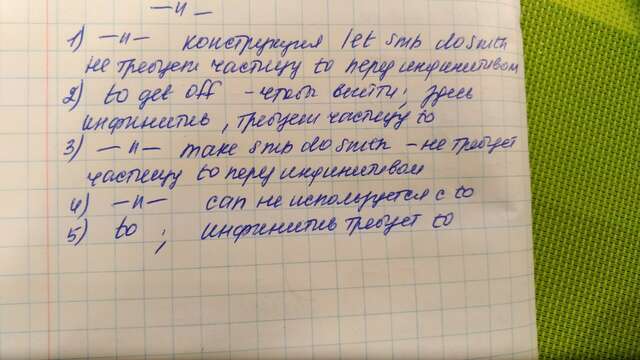 —"—
1) —"— конструкция let smb do smth
не требует частицу to перед инфинитивом
2) to get off - чтобы выйти; здесь
инфинитив, требует частицу to
3) —"— make smb do smth - не требует
частицу to перед инфинитивом
4) —"— can не используется с to
5) to ; инфинитив требует to